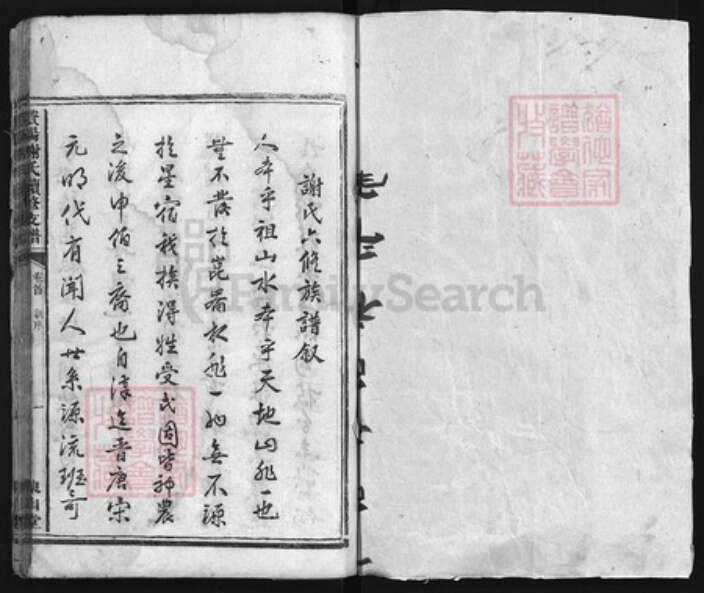 謝氏六修族譜叙
人本乎祖山水本乎天地山非一也
無不發於崑崙水非一也無不源
於星宿我族得姓受氏固皆神農
之後申伯之裔也自漢迄晉唐宋
元明代有聞人世系源流班可
謝氏續修支譜
卷首
一
FamilySearch